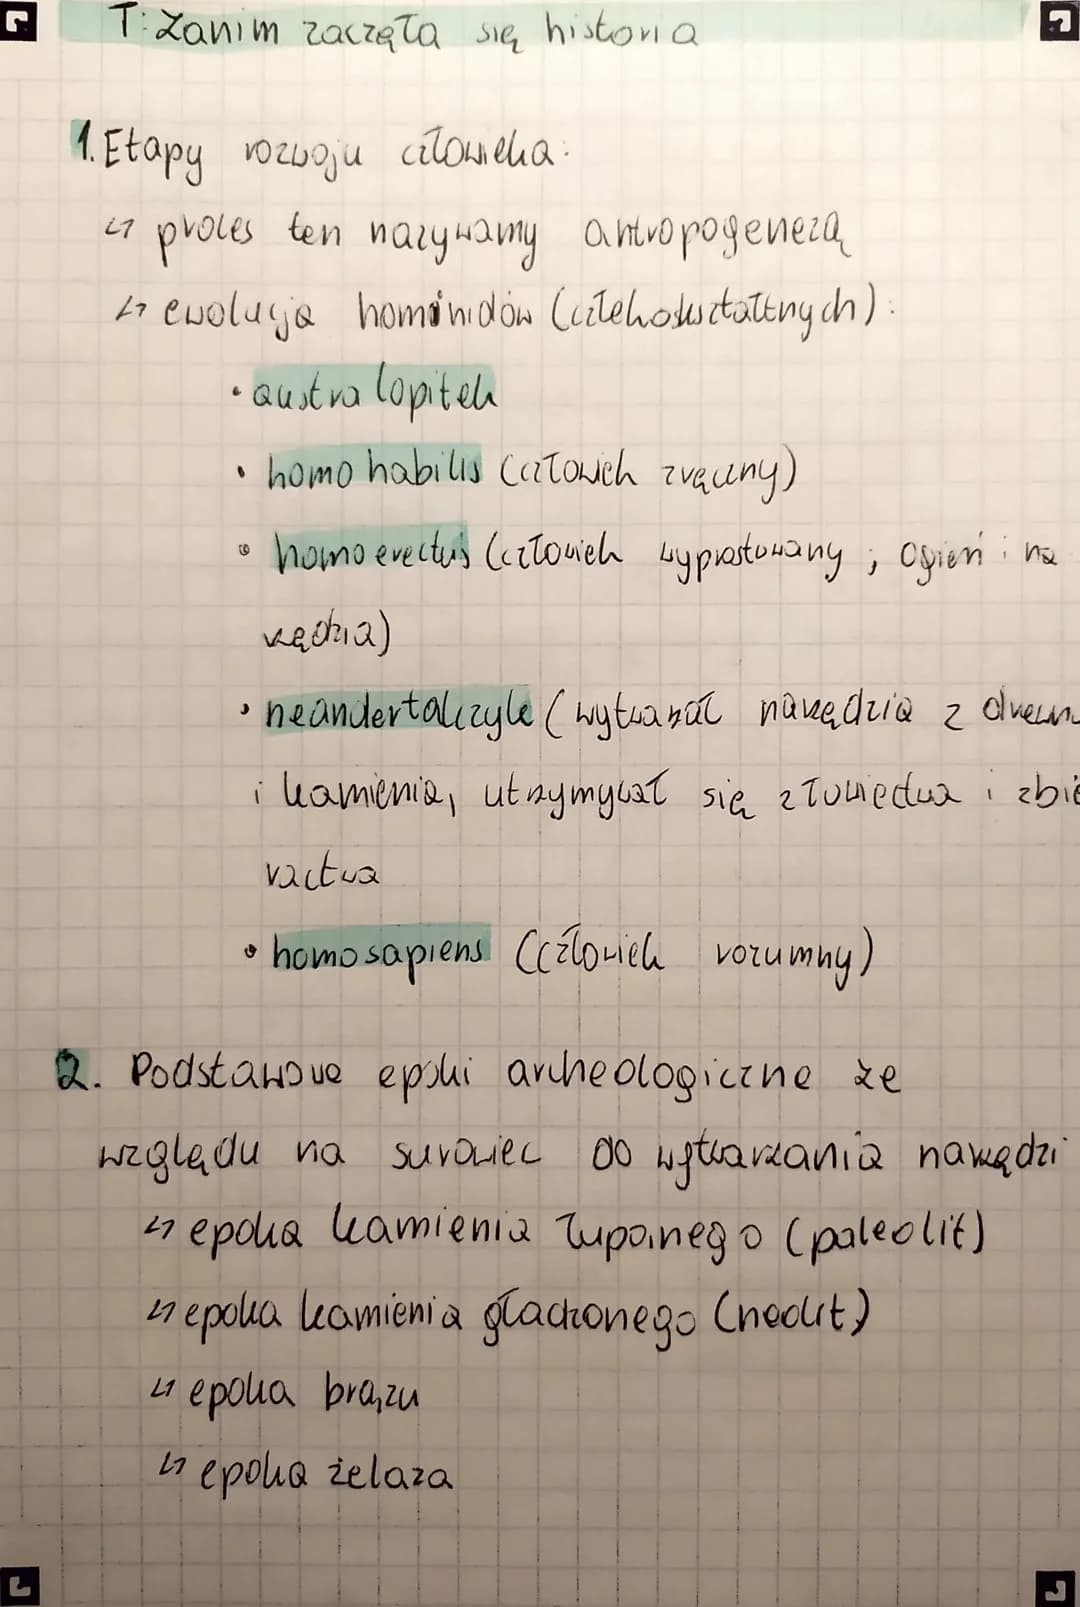 T: Zanim zaczęła się historia
1. Etapy rozwoju człowieka:
↳ proces ten nazywamy antropogenezą
↳ ewolucja hominidów (człekokształtnych):
• australopitek
• homo habilis (człowiek zręczny)
• homo erectus (człowiek wyprostowany; ogień i na
rzędzia)
• neandertalczyk (wytwarzał narzędzia z drewn
i kamienia, utrzymywał się z łowiectwa i zbie
ractwa
• homo sapiens (człowiek rozumny)
2. Podstawowe epoki archeologiczne ze
względu na surowiec do wytwarzania narzędzi
↳ epoka kamienia łupanego (paleolit)
↳ epoka kamienia gładzonego (neolit)
↳ epoka brązu
↳ epoka żelaza